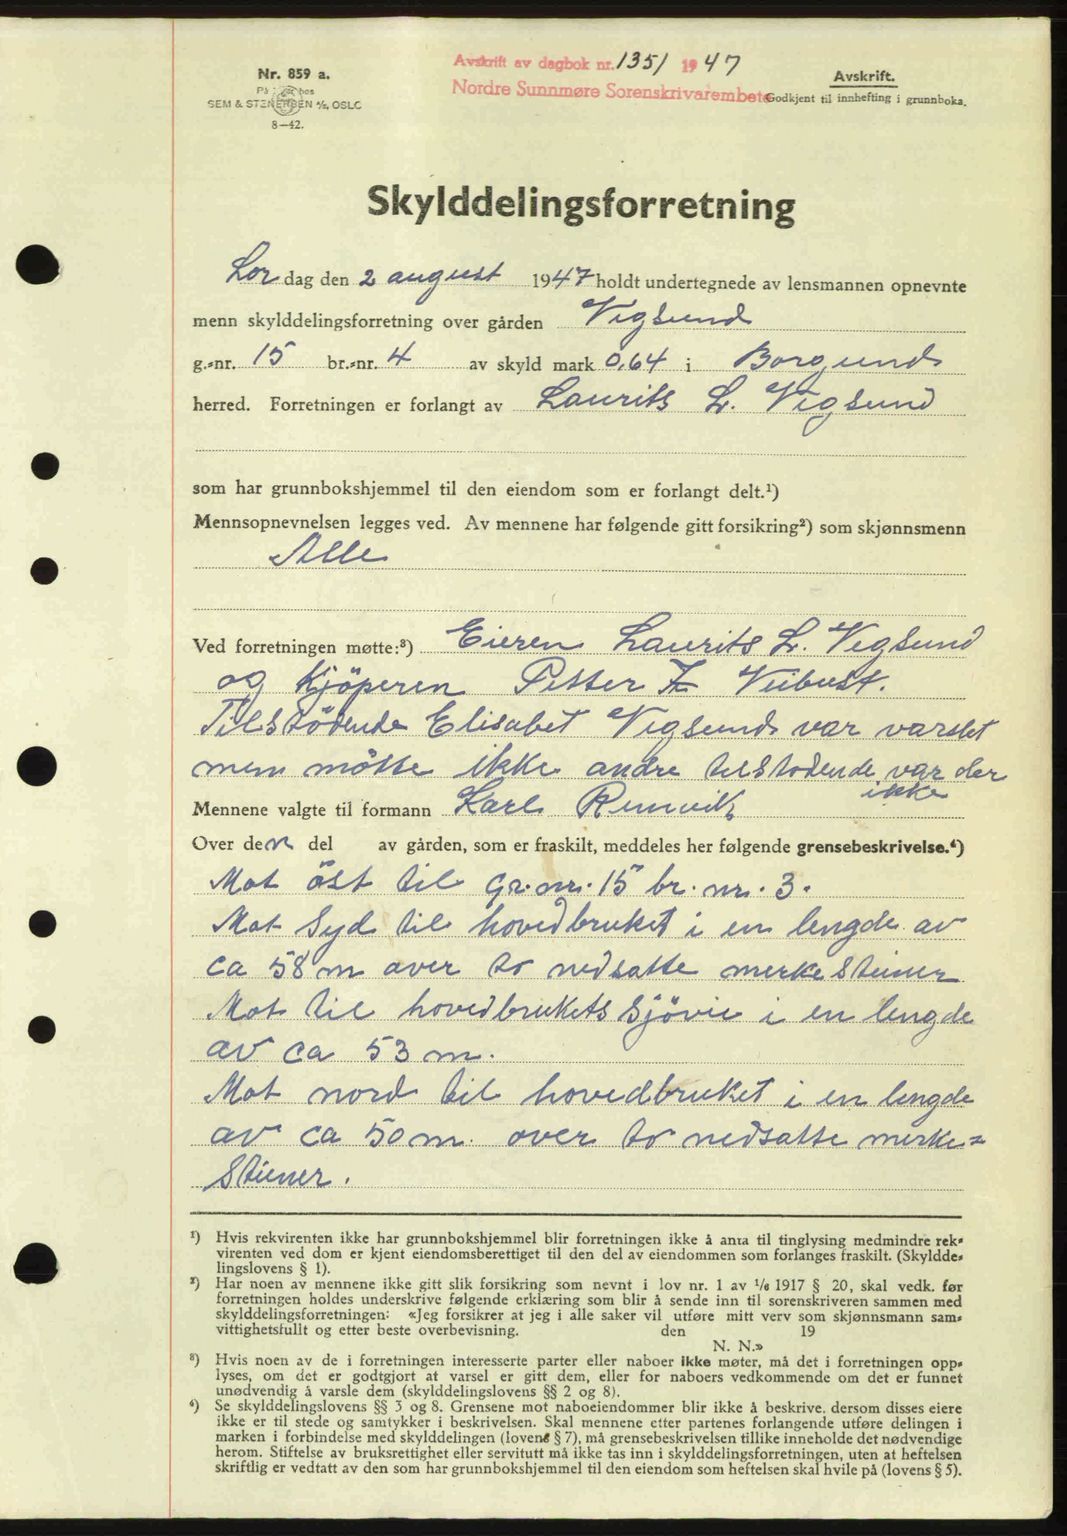 Nr. 859 a.
SEM & STENERSEN A/S, OSLO
8—42.
Avskrift av dagbok nr. 1351 1947
Nordre Sunnmøre Sorenskrivarembete
Avskrift.
Godkjent til innhefting i grunnboka.
Skylddelingsforretning
Lør dag den 2 august 1947 holdt undertegnede av lensmannen opnevnte
menn skylddelingsforretning over gården Vegsund
g.-nr. 15 br.-nr. 4 av skyld mark 0,64 i Borgund
herred. Forretningen er forlangt av Laurits L. Vegsund
som har grunnbokshjemmel til den eiendom som er forlangt delt.¹)
Mennsopnevnelsen legges ved. Av mennene har følgende gitt forsikring²) som skjønnsmenn
Alle
Ved forretningen møtte:³) Eieren Laurits L. Vegsund
og Kjöperen Petter Veibust.
Tilstödende Elisabet Vegsund var varslet
men mötte ikke andre tilstodende var der
ikke
Mennene valgte til formann Karl Remvik
Over den del av gården, som er fraskilt, meddeles her følgende grensebeskrivelse.⁴)
Mot öst til gr. nr. 15 br. nr. 3.
Mot Syd til hovedbruket i en lengde av
ca 58 m over to nedsatte merke Steiner
Mot til hovedbrukets Sjövei i en lengde
av ca 53 m.
Mot nord til hovedbruket i en lengde
av ca 50 m. over to nedsatte merke=
Steiner.
¹) Hvis rekvirenten ikke har grunnbokshjemmel blir forretningen ikke å anta til tinglysing medmindre rek-
virenten ved dom er kjent eiendomsberettiget til den del av eiendommen som forlanges fraskilt. (Skyldde-
lingslovens § 1).
²) Har noen av mennene ikke gitt slik forsikring som nevnt i lov nr. 1 av ¹/₆ 1917 § 20, skal vedk. før
forretningen holdes underskrive følgende erklæring som blir å sende inn til sorenskriveren sammen med
skylddelingsforretningen: «Jeg forsikrer at jeg i alle saker vil utføre mitt verv som skjønnsmann sam-
vittighetsfullt og etter beste overbevisning. den 19
N. N.»
³) Hvis noen av de i forretningen interesserte parter eller naboer ikke møter, må det i forretningen opp-
lyses, om det er godtgjort at varsel er gitt dem, eller for naboers vedkommende om det er funnet
unødvendig å varsle dem (skylddelingslovens §§ 2 og 8).
⁴) Se skylddelingslovens §§ 3 og 8. Grensene mot naboeiendommer blir ikke å beskrive. dersom disses eiere
ikke er til stede og samtykker i beskrivelsen. Skal mennene etter partenes forlangende utføre delingen i
marken i forbindelse med skylddelingen (lovens § 7), må grensebeskrivelsen tillike inneholde det nødvendige
herom. Stiftelse av bruksrettighet eller servitutt må ikke tas inn i skylddelingsforretningen, uten at heftelsen
skriftlig er vedtatt av den som har grunnbokshjemmel til den eiendom som heftelsen skal hvile på (lovens § 5).